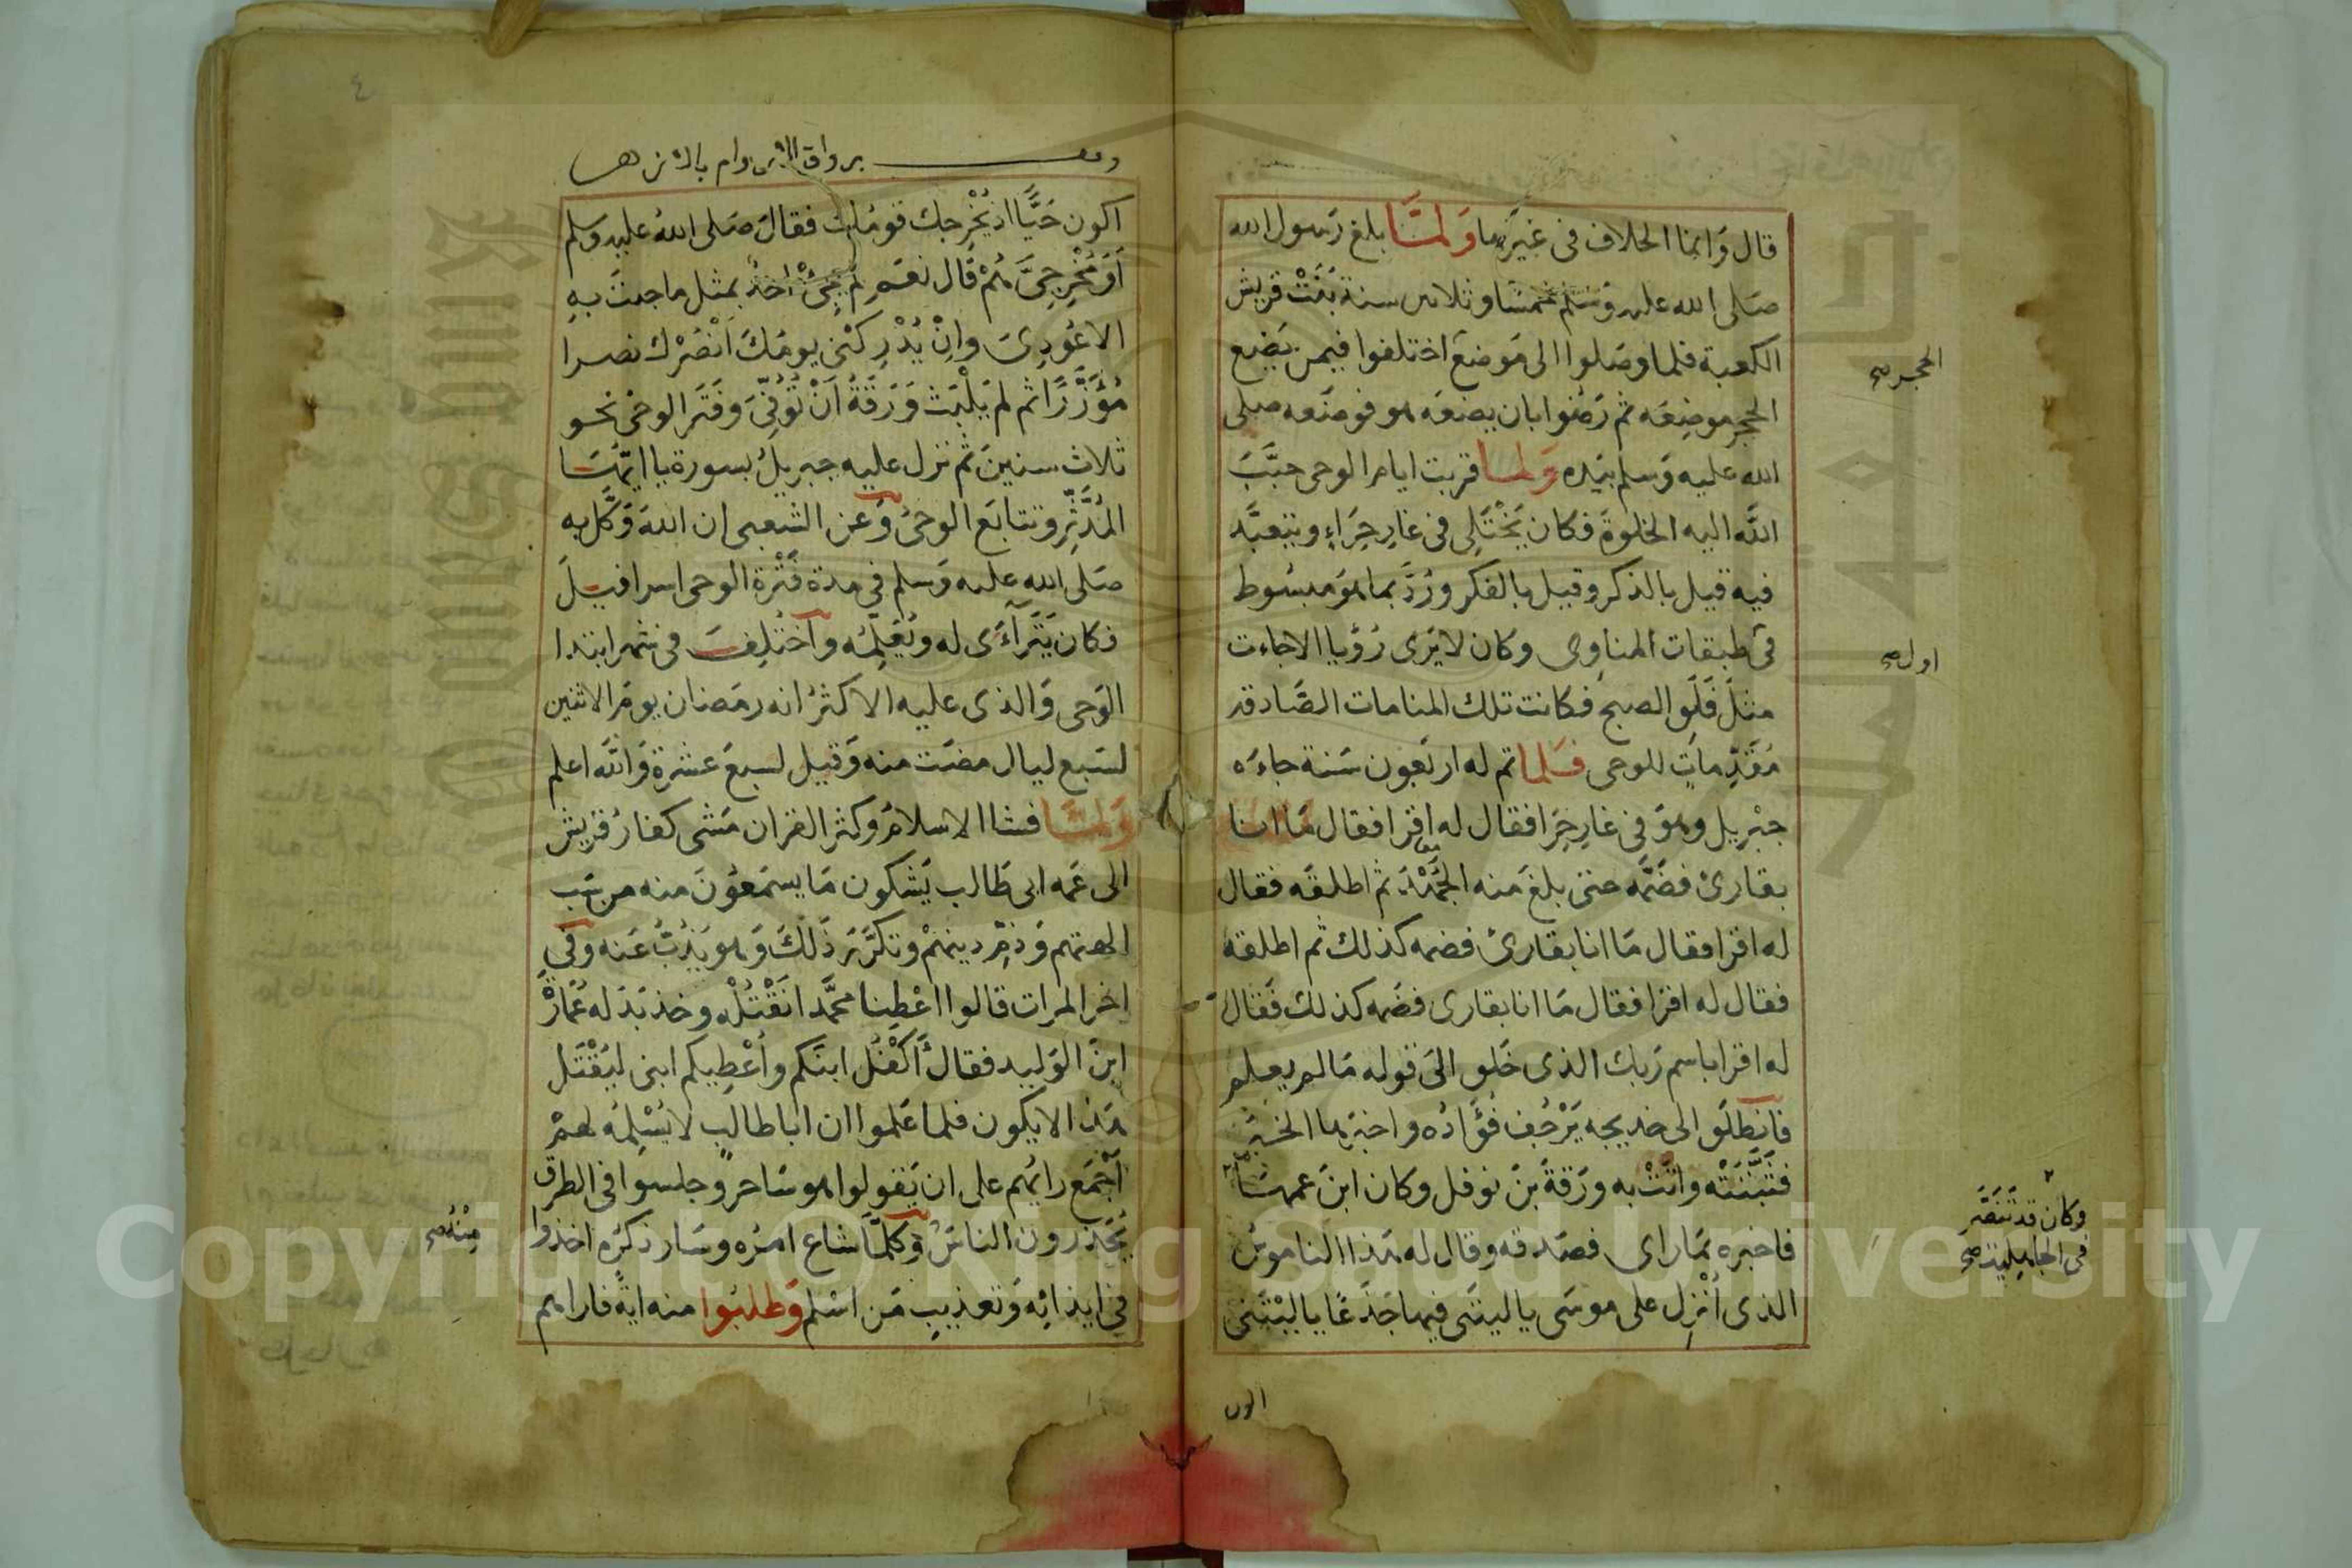 قال وَانما الخلاف فى غيرها وَلمَّا بلغ رَسول الله
صَلى الله عليه وَسلم خمسًا وثلاثين سنة بَنَتْ قريش
الكعبة فلما وصَلوا الى مَوضع اختلفوا فيمن يَضَع
الحجر موضِعَه ثم رَضُوا بان يضعَه هو فوضَعه صلى
الله عليه وَسلم بيَده وَلما قربت ايام الوحى حبَّبَ
اللّه اليه الخلوة فكان يَخْتَلِى فى غارِ حِرَاءٍ ويتعبَّد
فيه قيل بالذكر وقيل بالفكر ورُدَّ بما هو مبسُوط
فى طبقات المناوِى وكان لا يَرى رُؤيا الا جاءت
مثلَ فَلَقِ الصبح فكانت تلك المنامات الصَّادقة
مُقَدِّماتٍ للوحى فلما تم له اربَعون سَنة جاءَه
جبْريل وهوَ فى غارِ حِرَا فقال له اقرا فقال مَا انا
بقارئ فضَمَّه حتى بلغَ منه الجَهْدَ ثم اطلقَه فقال
له اقرا فقال مَا انا بقارئ فضمه كذلك ثم اطلقه
فقال له اقرا فقال مَا انا بقارى فضَمه كذلك فقال
له اقرا باسم رَبك الذى خَلق الى قوله مَا لم يعلم
فانطَلَق الى خديجه يَرْجُف فُؤَادُه واخبَرها الخبَر
فثَبَّتَتْه واتَتْ به ورَقةَ بنَ نوفل وكان ابنَ عمها
فاخبره بمَا راى فصَدقه وقال له هَذا الناموسُ
الذى أُنْزِل على موسَى يا ليتَنى فيها جَذَعًا يا ليْتَنى
الحجر صح
اول صح
وكان قد تَنَصَّر
فى الجاهلية صح
اكون
٤
اكون حَيًّا اذ يُخْرِجك قومُك فقالَ صَلى اللهُ عليه وَسلم
أَوَمُخْرِجِىَّ هُمْ قال نعَم لم يَجِئْ احَدٌ بمثل ما جئتَ بهِ
الا عُودِىَ وانْ يُدْرِكْنى يومُكَ اَنْصُرْك نصرا
مُؤَزَّرًا ثم لم يَلْبَث وَرَقَةُ اَنْ تُوُفِّىَ وفَتَر الوحىُ نحو
ثلاث سنينَ ثم نزل عليه جبريلُ بسورة يا ايها
المُدَّثِّر وتتابَع الوحىُ وَعن الشعبى ان اللهَ وَكَّلَ به
صَلى الله عليه وَسلم فى مدة فَتْرة الوحى اسرافيلَ
فكان يَتَرَآءَى له ويُعَلِّمُه واختُلِفَ فى شهر ابتدا
الوَحى وَالذى عليه الاكثرُ انه رمَضان يومَ الاثنين
لسَبع ليال مضَت منه وَقيل لسبعَ عشرةَ وَاللّه اعلم
وَلمَّا فشا الاسلامُ وكثر القران مَشى كفارُ قريش
الى عَمه ابى طَالب يَشكون مَا يسمَعُونَ منه من سَب
الهتهم وَذمِّ دينهمْ وتكَرَّرَ ذَلكَ وَهو يَذُبُّ عَنه وفى
اخر المرات قالوا اعْطِنا محمَّدا نَقْتُلْه وخذ بَدَله عُمَارَةَ
ابنَ الوَلِيد فقال أَأَكْفُل ابنَكم وأُعْطِيكم ابنى ليُقْتَل
هَذا لا يكون فلما عَلموا ان ابا طالبٍ لا يُسْلِمُه لهمْ
أَجْمَعَ رايُهم على ان يَقولوا هو سَاحر وجلسوا فى الطرق
يُحَذرون الناسَ وَكلمَّا شاع امرُه وسَار ذكرُه اخذوا
فى ايذائِه وَتعذيبِ مَن اسْلم وَطلبُوا منه ايةً فاراهم
مِنْهُ صح